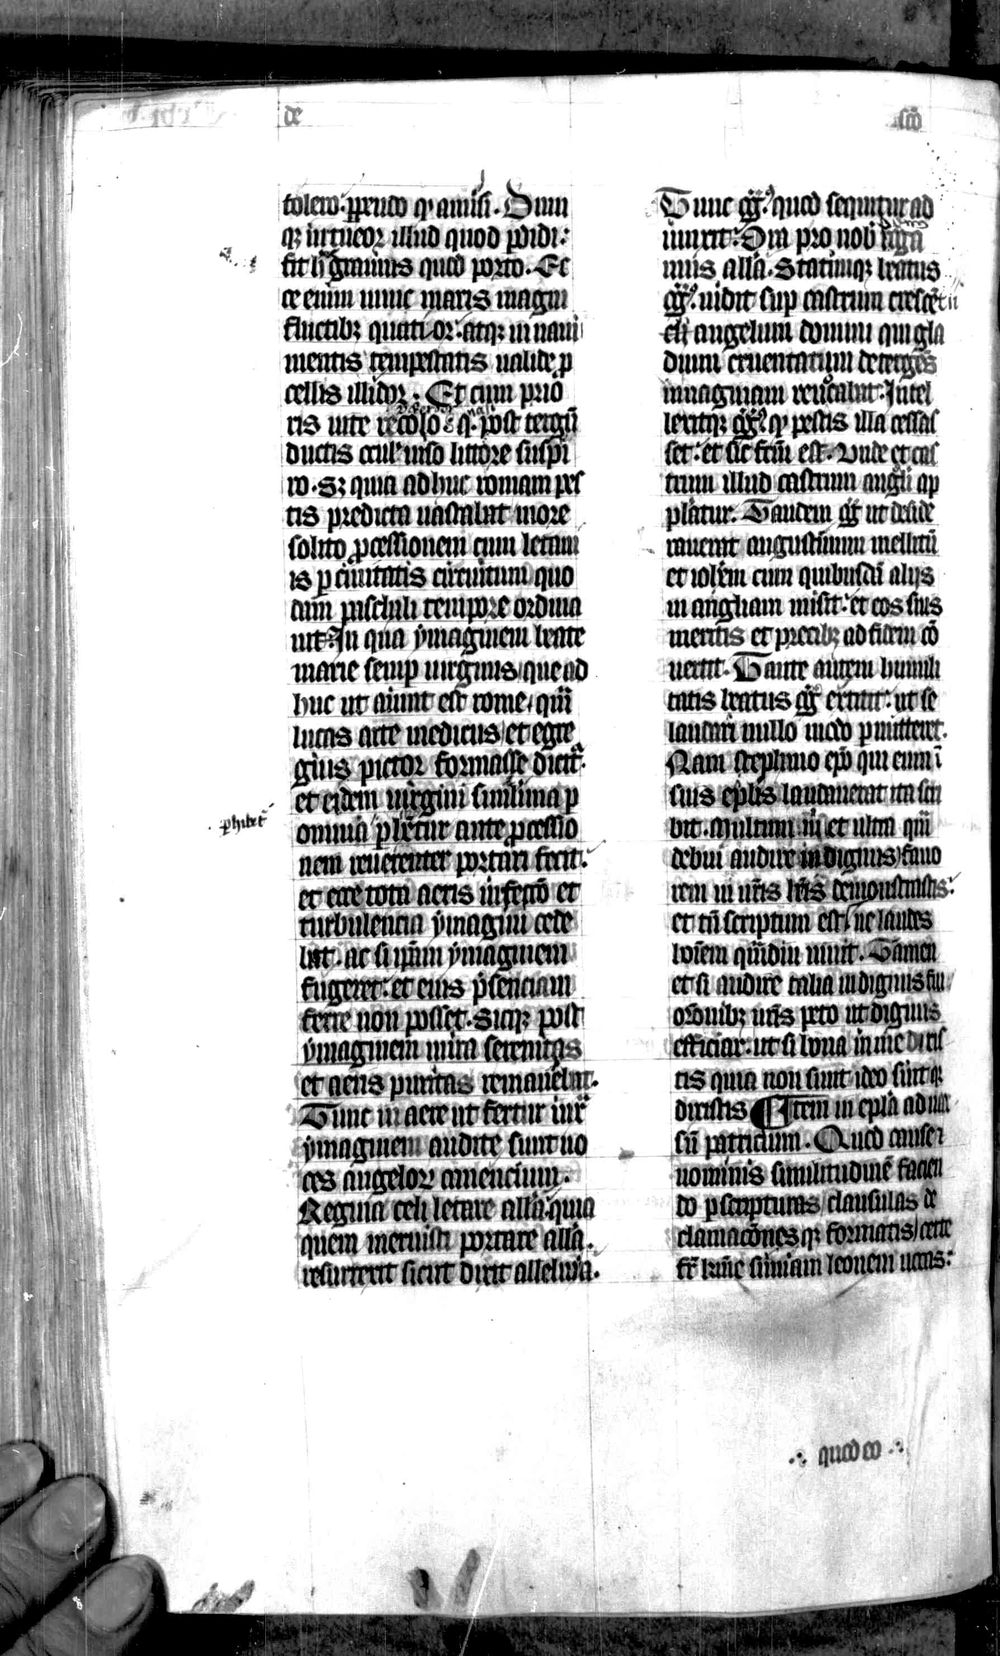 de
sco
tolero. ꝑpendo qͥ amisi. Dum
qꝫ intueor illud quod ꝑdidi:
fit hͦ grauius quod porto. Ec
ce enim nunc maris magni
fluctibꝫ quatior. atqꝫ in naui
mentis tempestatis ualide ꝓ
cellis illidor. Et cum prio
ris uite recolo
post tergū
ductis oculis uiso littore suspi
ro. Sꝫ quia adhuc romam pes
tis predicta uastabat more
solito ꝓcessionem cum letani
is ꝑ ciuitatis circuitum quo
dam paschali tempore ordina
uit. In qua ymaginem beate
marie semꝑ uirginis que ad
huc ut aiunt est rome, quā
lucas arte medicus et egre
gius pictor formasse dicit̄.
et eidem uirgini simillima ꝑ
omnia ꝑhibetur ante ꝓcessio
ꝑhibet̄
nem reuerenter portari fecit.
et ecce tota aeris infectō et
turbulencia ymagini cede
bat. ac si ip̄am ymaginem
fugeret. et eius p̄senciam
ferre non posset. Sicqꝫ post
ymaginem mira serenitas
et aeris puritas remanebat.
Tunc in aere ut fertur iux̄
ymaginem audite sunt uo
ces angeloꝝ canencium.
Regina celi letare all̄a. quia
quem meruisti portare all̄a.
resurrexit sicut dixit alleluia.
Tunc gḡ. quod sequitur ad
iunxit. Ora pro nob̄ rogā
mus all̄a. Statimqꝫ beatus
gḡ. uidit suꝑ castrum crescētii
angelum domini qui gla
dium cruentatum detergēs
in uaginam reuocabat. Intel
lexitqꝫ gḡ. qͥ pestis illa cessas
set. et sic fc̄m est. Unde et cas
trum illud castrum angeli ap
pl̄atur. Tandem gḡ ut deside
rauerat augustinum mellitū
et ioh̄em cum quibusdā alijs
in angliam misit. et eos suis
meritis et precibꝫ ad fidem cō
uertit. Tante autem humili
tatis beatus gḡ extitit. ut se
laudari nullo modo ꝑmitteret.
Nam stephano ep̄o qui eum ī
suis ep̄lis laudauerat ita scri
bit. Multum m̄ et ultra quā
debui audire indignus fauo
rem in ur̄is lr̄is demonstrastis.
et tn̄ scriptum est ne laudes
hōiem qm̄diu uiuit. Tamen
et si audire talia indignus fui
or̄onibꝫ ur̄is peto ut dignus
efficiar. ut si bona in me dixis
tis quia non sunt ideo sint qꝫ
dixistis Item in epl̄a ad nar
sū patricium. Quod cause ⁊
nominis similitudinē facien
do ꝑ scripturas clausulas de
clamacōnesqꝫ formatis certe
fr̄ kar̄me simiam leonem uocas.
quod eo